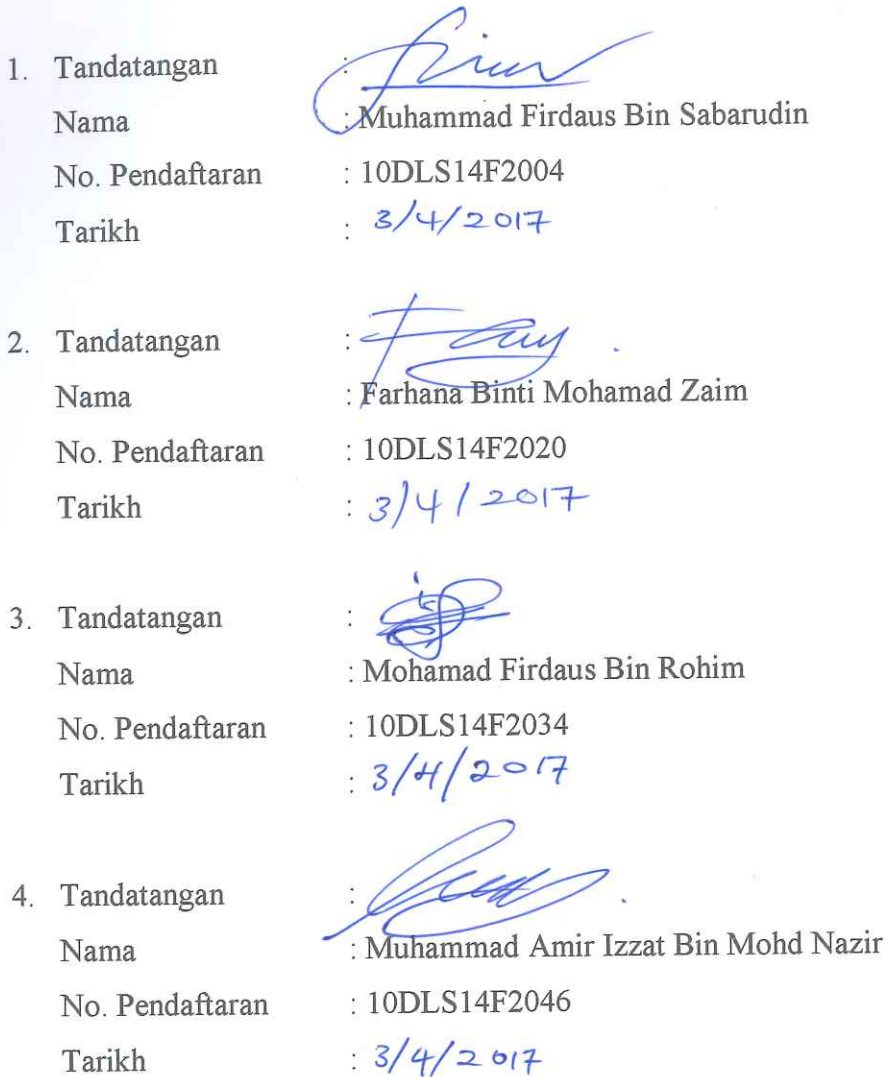 1. Tandatangan :
Nama : Muhammad Firdaus Bin Sabarudin
No. Pendaftaran : 10DLS14F2004
Tarikh : 3/4/2017
2. Tandatangan :
Nama : Farhana Binti Mohamad Zaim
No. Pendaftaran : 10DLS14F2020
Tarikh : 3/4/2017
3. Tandatangan :
Nama : Mohamad Firdaus Bin Rohim
No. Pendaftaran : 10DLS14F2034
Tarikh : 3/4/2017
4. Tandatangan :
Nama : Muhammad Amir Izzat Bin Mohd Nazir
No. Pendaftaran : 10DLS14F2046
Tarikh : 3/4/2017